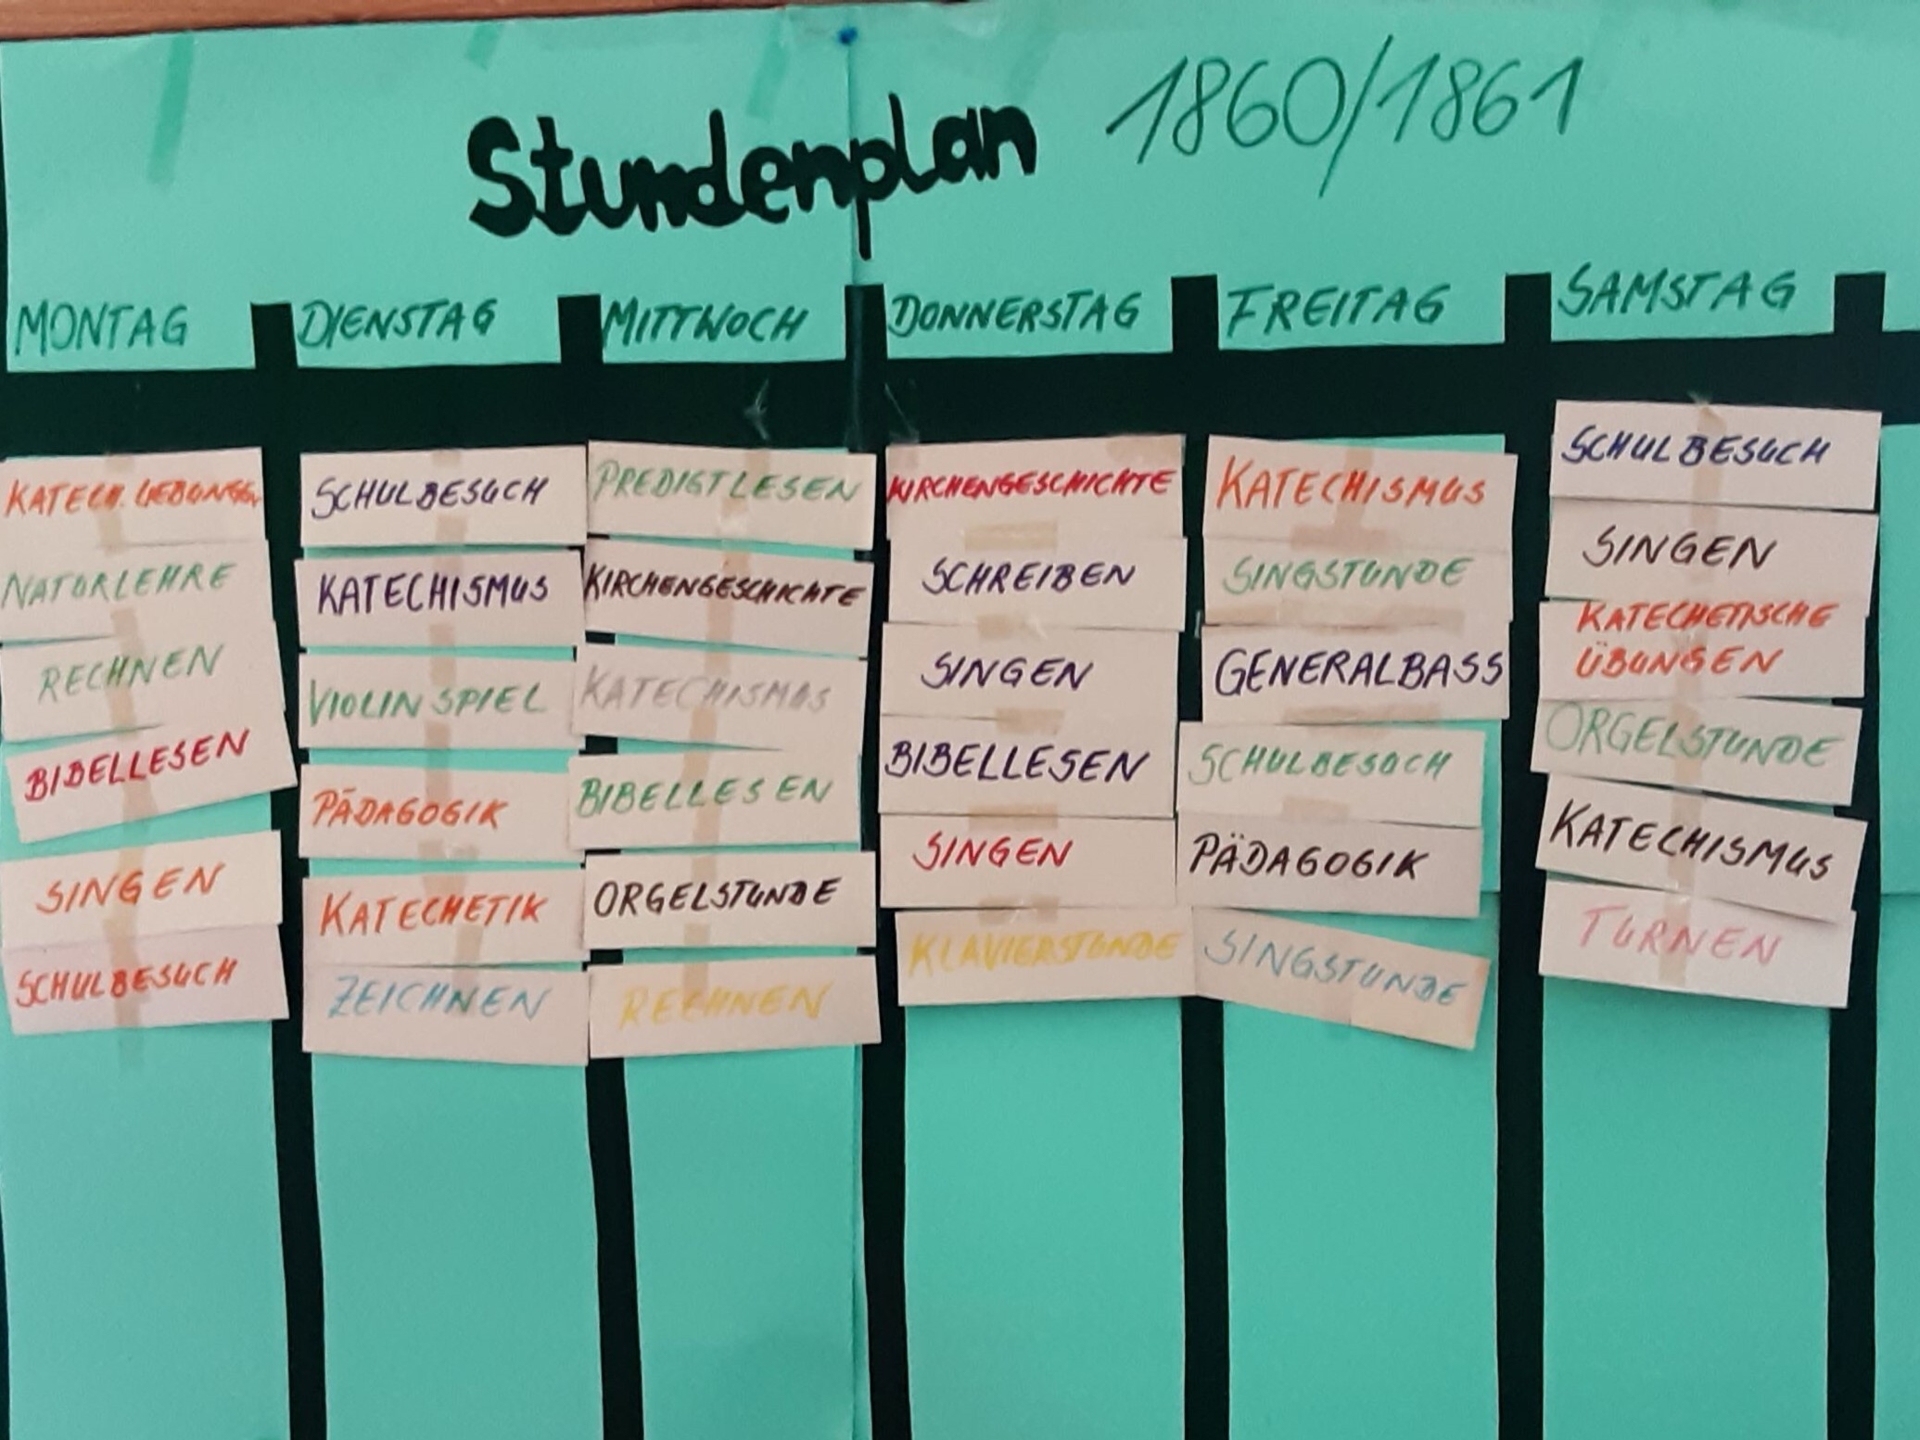 Stundenplan 1860/1861
MONTAG DIENSTAG MITTWOCH DONNERSTAG FREITAG SAMSTAG
KATECH. UEBUNGEN
NATURLEHRE
RECHNEN
BIBELLESEN
SINGEN
SCHULBESUCH
SCHULBESUCH
KATECHISMUS
VIOLINSPIEL
PÄDAGOGIK
KATECHETIK
ZEICHNEN
PREDIGTLESEN
KIRCHENGESCHICHTE
KATECHISMUS
BIBELLESEN
ORGELSTUNDE
RECHNEN
KIRCHENGESCHICHTE
SCHREIBEN
SINGEN
BIBELLESEN
SINGEN
KLAVIERSTUNDE
KATECHISMUS
SINGSTUNDE
GENERALBASS
SCHULBESUCH
PÄDAGOGIK
SINGSTUNDE
SCHULBESUCH
SINGEN
KATECHETISCHE
ÜBUNGEN
ORGELSTUNDE
KATECHISMUS
TURNEN